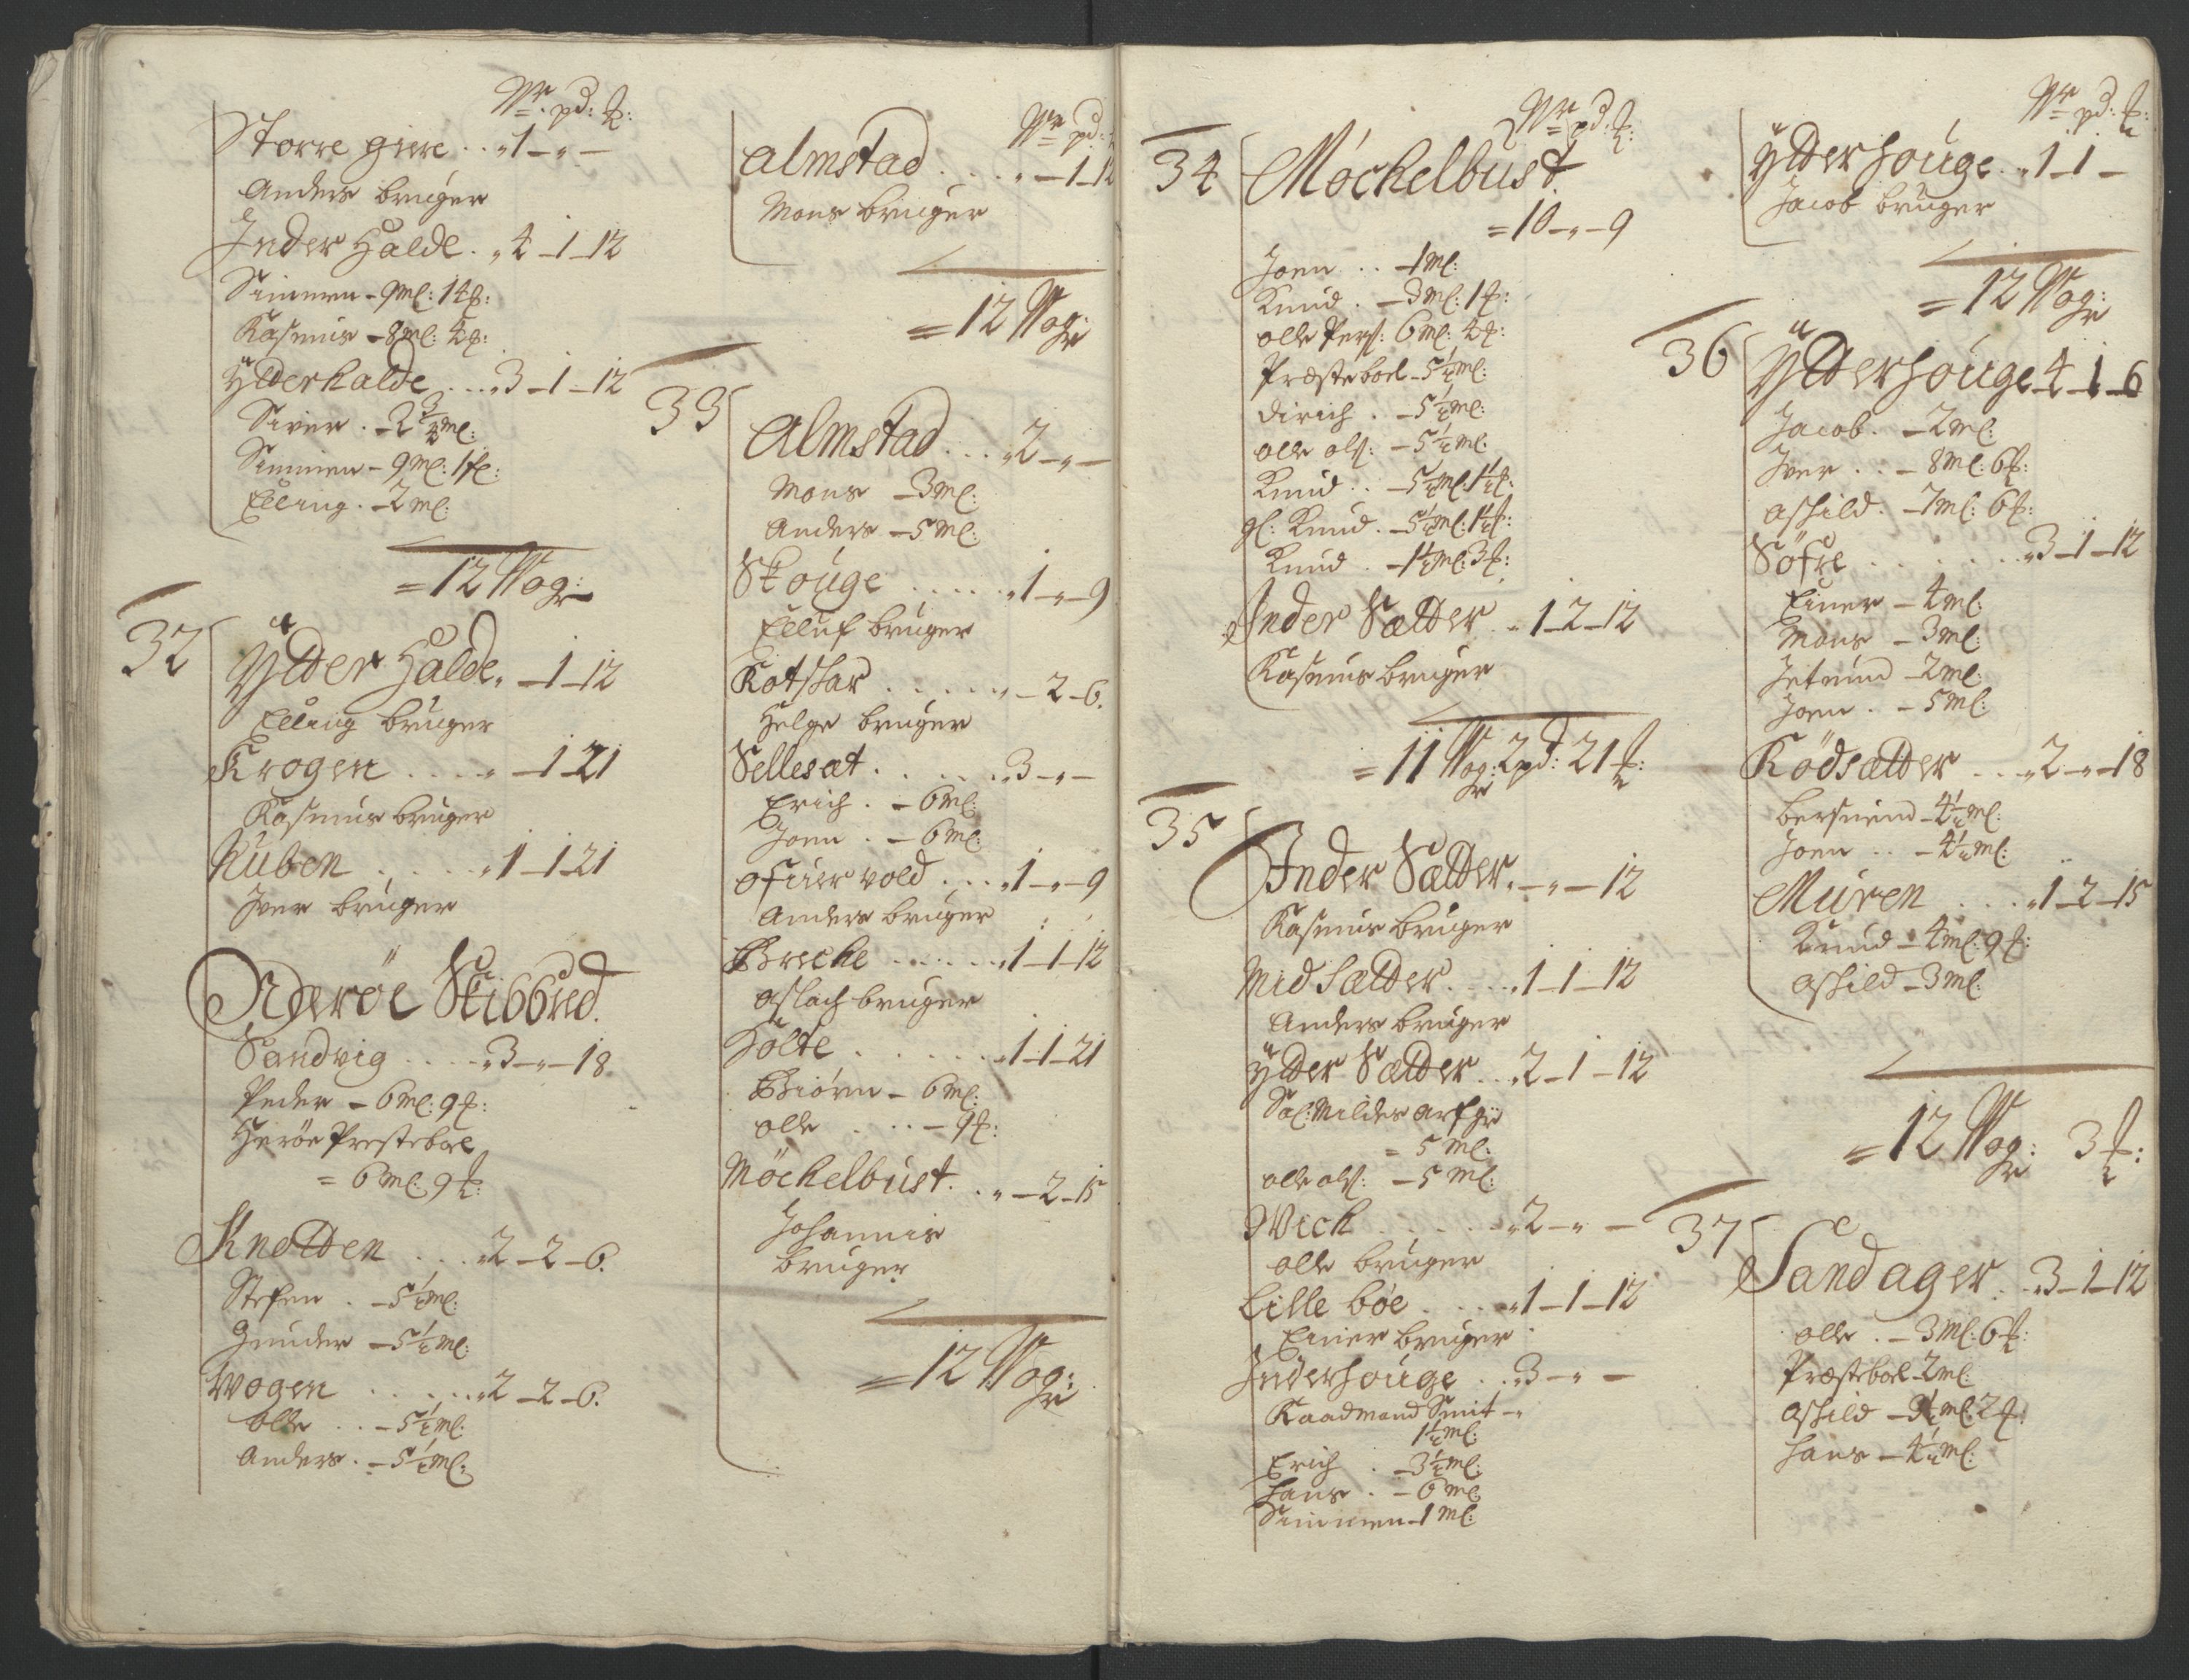 Wr. pd: ℔:
Storre giere . . „1 – „ –
Anders bruger
Inder Halde . „4 – 1 – 12
Simmen – 9 ml: 1½ ℔:
Rasmus – 8 ml: 4 ℔:
Ÿtterhalde . . . „3 – 1 – 12
Siver . – 2¾ ml:
Simmen – 9 ml: 1 ℔:
Elling . – 2 ml:
= 12 Wog:
32
Ÿtter Halde . – 1 – 12
Elling bruger
Krogen . . . . „ – 1 21
Rasmus bruger
Ruben . . . . „1 – 1 21
Iver bruger
Nerøe Skibbred.
Sandvig . . . . „3 – „ – 18
Peder – 6 ml: 9 ℔:
Herøe Presteboel
= 6 ml: 9 ℔:
Knotten . . . „2 – 2 – 6.
Stefen . – 5½ ml:
Gunder – 5½ ml:
Wogen . . . . . „2 – 2 – 6.
Olle . . – 5½ ml:
Anders . – 5½ ml:
Wr pd:
Almstad . . . . „ – 1 – 12
Mons bruger
= 12 Wog:
33
Almstad . . . „2 – „ –
Mons – 3 ml:
Anders – 5 ml:
Skouge . . . . . „1 – „ – 9
Elluf bruger
Rotshar . . . . . „ – 2 – 6.
Helge bruger
Sellesæt . . . . . „3 – „ –
Erich . – 6 ml:
Joen . – 6 ml:
Ofuervold . . . „1 – „ – 9
Anders bruger
Breche . . . . . . „1 – 1 – 12
Aslach bruger
Holte . . . . . . „1 – 1 – 21
Biørn – 6 ml:
Olle . . . – 9 ℔:
Möchelbust . . „ – 2 – 15
Johannis
bruger
= 12 Wog:
Wr pd: ℔:
34
Möchelbust.
= 10 – „ – 9
Joen . . – 1 ml:
Knud . – 3 ml: 1 ℔:
Olle Pers: 6 ml: 4 ℔:
Præsteboel – 5½ ml:
Dirich . – 5½ ml:
Olle Ols: – 5½ ml:
Knud . . – 5½ ml: 1½ ℔:
gl: Knud . – 5½ ml: 1½ ℔:
Knud . – 1½ ml: 3 ℔:
Inder Sætter . „1 – 2 – 12
Rasmus bruger
= 11 Wog: 2 pd: 21 ℔:
35
Inder Sætter . – „ – 12
Rasmus bruger
Mid Sætter . . . „1 – 1 – 12
Anders bruger
Ÿtter Sætter . . „2 – 1 – 12
Sal: Milders arfg:
= 5 ml:
Olle Ols: – 5 ml:
Wich . . . . . . „2 – „ –
Olle bruger
Lille bøe . . . . „1 – 1 – 12
Einer bruger
Inderhouge . . „3 – „ –
Raadmand Smit – „
1½ ml:
Erich . – 3½ ml:
Hans . – 6 ml:
Simmen – 1 ml:
Wr pd: ℔:
Ÿtterhouge . „1 – 1 –
Jacob bruger
= 12 Wog:
36
Ÿtterhouge 4 – 1 – 6
Jacob . – 2 ml:
Iver . . – 8 ml: 6 ℔:
Ashild . – 7 ml: 6 ℔:
Søfre . . . . . . „3 – 1 – 12
Einer – 4 ml:
Mons – 3 ml:
Jetmund – 2 ml:
Joen . – 5 ml:
Rödsætter . . „2 – „ – 18
Bersuend – 4½ ml:
Joen . . – 4½ ml:
Muren . . . „1 – 2 – 15
Knud – 4 ml: 9 ℔:
Ashild – 3 ml:
= 12 Wog: 3 ℔:
37
Sandager . . „3 – 1 – 12
Olle . – 3 ml: 6 ℔:
Præsteboel – 2 ml:
Ashild – ml: 2 ℔:
Hans – 4½ ml: